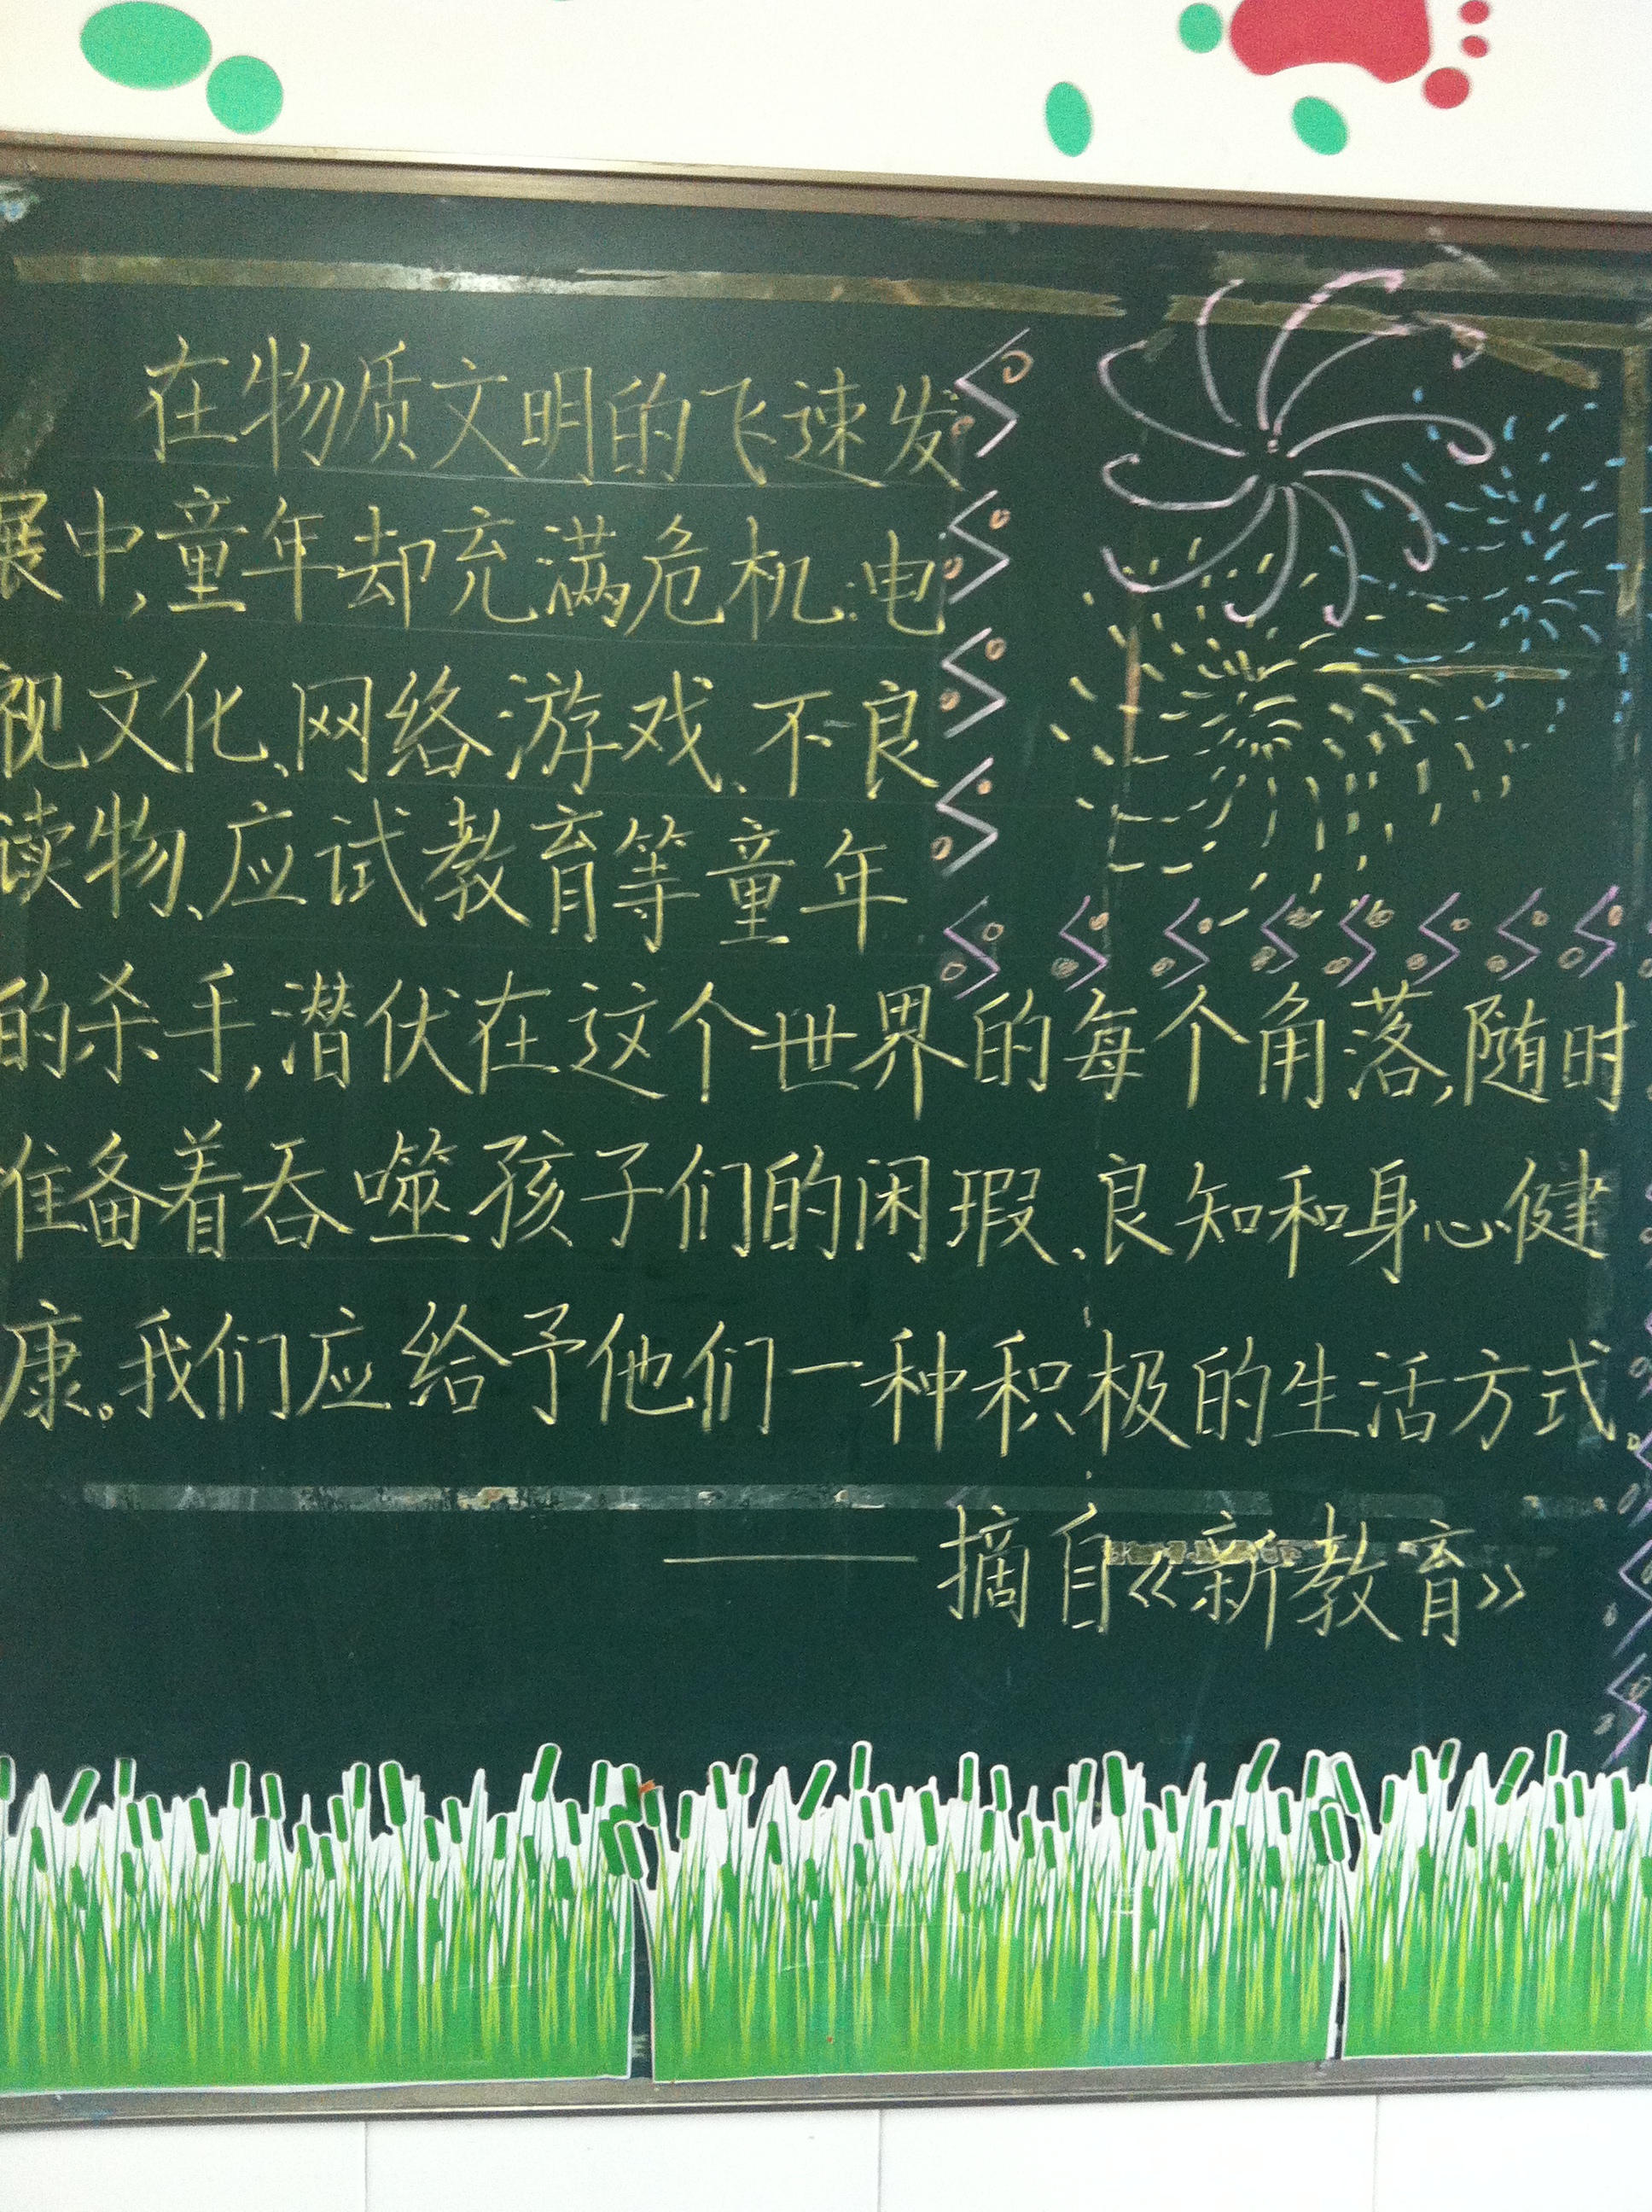 在物质文明的飞速发
展中,童年却充满危机:电
视文化、网络游戏、不良
读物、应试教育等童年
的杀手,潜伏在这个世界的每个角落,随时
准备着吞噬孩子们的闲瑕、良知和身心健
康。我们应给予他们一种积极的生活方式。
——摘自《新教育》